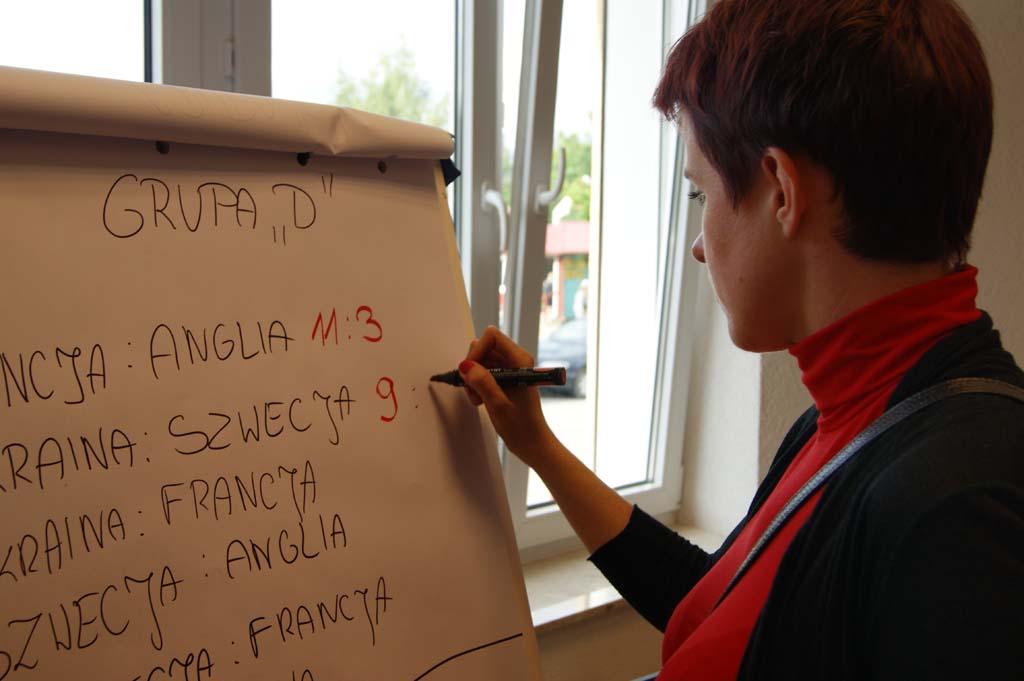 GRUPA „D"
NCJA : ANGLIA 11:3
RAINA : SZWECJA 9 :
KRAINA : FRANCJA
SZWECJA : ANGLIA
CJA : FRANCJA